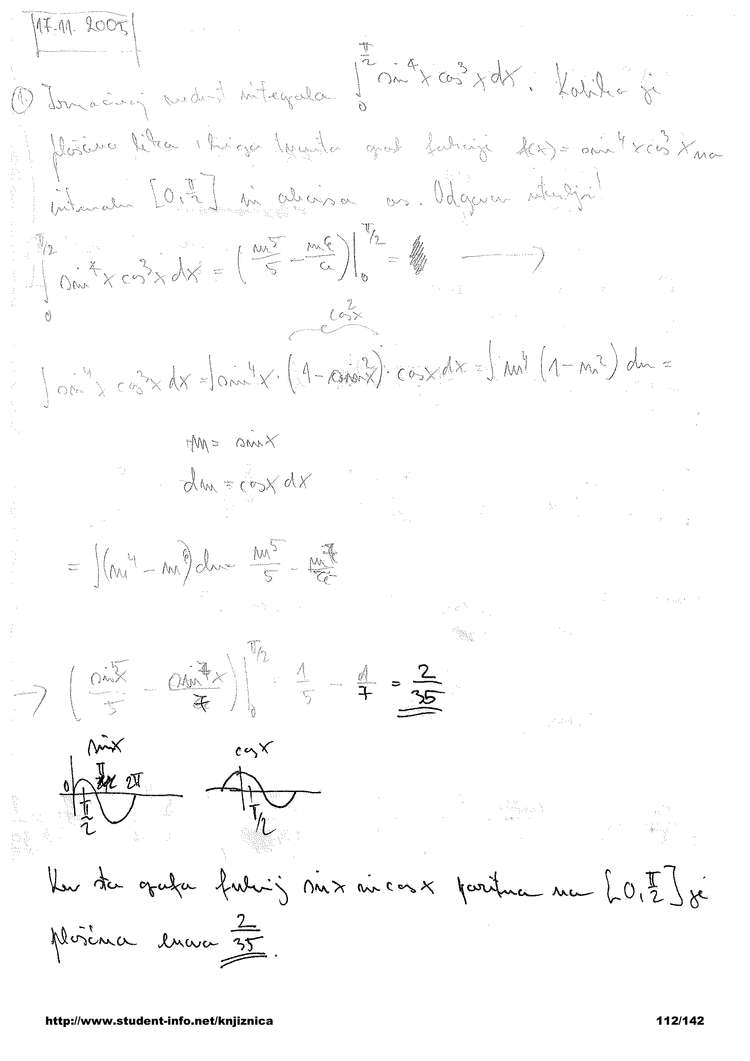 17.11.2005
1. Izračunaj vrednost integrala ∫₀^{π/2} sin⁴x cos³x dx. Kolika je
ploščina lika, ki ga graf funkcije f(x) = sin⁴x cos³x na
intervalu [0, π/2] in abscisa os. Odgovor utemelji!
∫₀^{π/2} sin⁴x cos³x dx = (m⁵/5 - m⁶/6)|₀^{π/2} = →
cos²x
∫ sin⁴x cos³x dx = ∫ sin⁴x · (1 - sin²x) · cosx dx = ∫ m⁴ (1 - m²) dm =
m = sinx
dm = cosx dx
= ∫(m⁴ - m⁶) dm = m⁵/5 - m⁷
→ (sin⁵x/5 - sin⁷x/7)|₀^{π/2} = 1/5 - 1/7 = 2/35
sinx cosx
0 π/2 π 2π π/2
Ker sta grafa funkcij sinx in cosx pozitivna na [0, π/2] je
ploščina enaka 2/35.
http://www.student-info.net/knjiznica 112/142